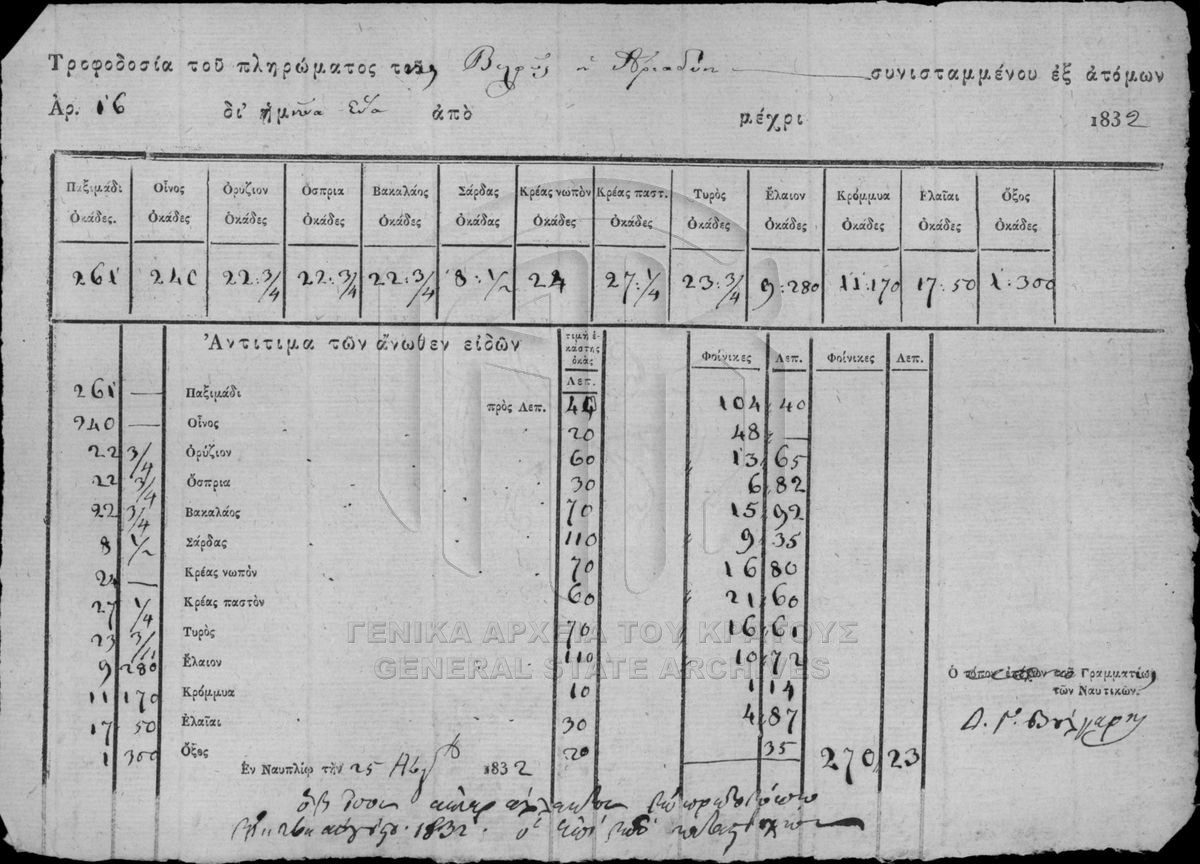 Τροφοδοσία τοῦ πληρώματος τῆς ἡ Ἀριάδνη συνισταμμένου ἐξ ἀτόμων
Ἀρ. 16 δι' ἡμ ἀπὸ μέχρι 1832
Παξιμάδι Οἶνος Ὀρύζιον Ὄσπρια Βακαλάος Σάρδας Κρέας νωπὸν Κρέας παστ. Τυρὸς Ἔλαιον Κρόμμυα Ἐλαῖαι Ὄξος
Ὀκάδες. Ὀκάδες Ὀκάδες Ὀκάδες Ὀκάδες Ὀκάδας Ὀκάδες Ὀκάδες Ὀκάδες Ὀκάδες Ὀκάδες Ὀκάδες Ὀκάδες
261 240 22:3/4 22:3/4 22:3/4 8:1/2 24 27:1/4 23:3/4 9:280 11:170 17:50 1:300
Ἀντίτιμα τῶν ἄνωθεν εἰδῶν τιμὴ ἑκάστης ὀκᾶς Φοίνικες Λεπ. Φοίνικες Λεπ.
Λεπ.
261 — Παξιμάδι πρὸς Λεπ. 40 104 40
240 — Οἶνος 20 48 —
22 3/4 Ὀρύζιον 60 13 65
22 3/4 Ὄσπρια 30 6 82
22 3/4 Βακαλάος 70 15 92
8 1/2 Σάρδας 110 9 35
24 — Κρέας νωπὸν 70 16 80
27 1/4 Κρέας παστὸν 60 21 60
23 3/4 Τυρὸς 70 16 61
9 280 Ἔλαιον 110 10 72
11 170 Κρόμμυα 10 1 14
17 50 Ἐλαῖαι 30 4 87
1 300 Ὄξος 20 35 270 23
Ὁ Γραμματεὺς
τῶν Ναυτικῶν.
Δ. Γ. Βούλγαρης
Ἐν Ναυπλίῳ τὴν 25 Αὐγ. 1832
1832. ὁ
ΓΕΝΙΚΑ ΑΡΧΕΙΑ ΤΟΥ ΚΡΑΤΟΥΣ
GENERAL STATE ARCHIVES